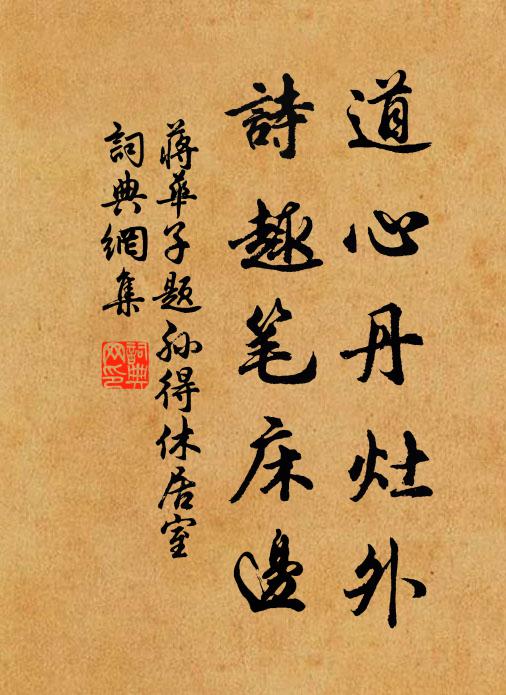 道心丹灶外
詩趣笔床邊
蔣華子題孙得休居室
詞典網集
詞典
网印